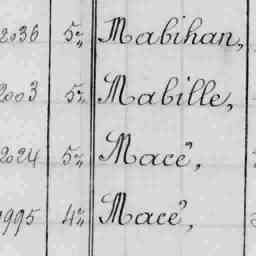 2036 5" Mabihan,
2003 5" Mabille,
2024 5" Macé,
1995 4" Macé,